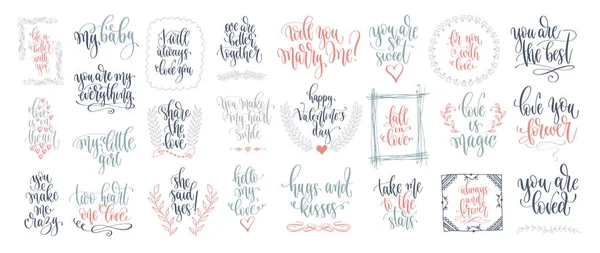 life is
better
with you
my baby
i will
always
love you
we are
better
together
will you
marry me?
you are
so
sweet
for you
with
love
you are
the best
you are my
everything
love
is in
the air
my little
girl
share
the
love
you make
my heart
smile
happy
valentine's
day
fall
in
love
love
is
magic
love you
forever
you
make
me
crazy
two heart
one love
she
said
yes!
hello
my
love
hugs and
kisses
take me
to the
stars
always
and
forever
you are
loved